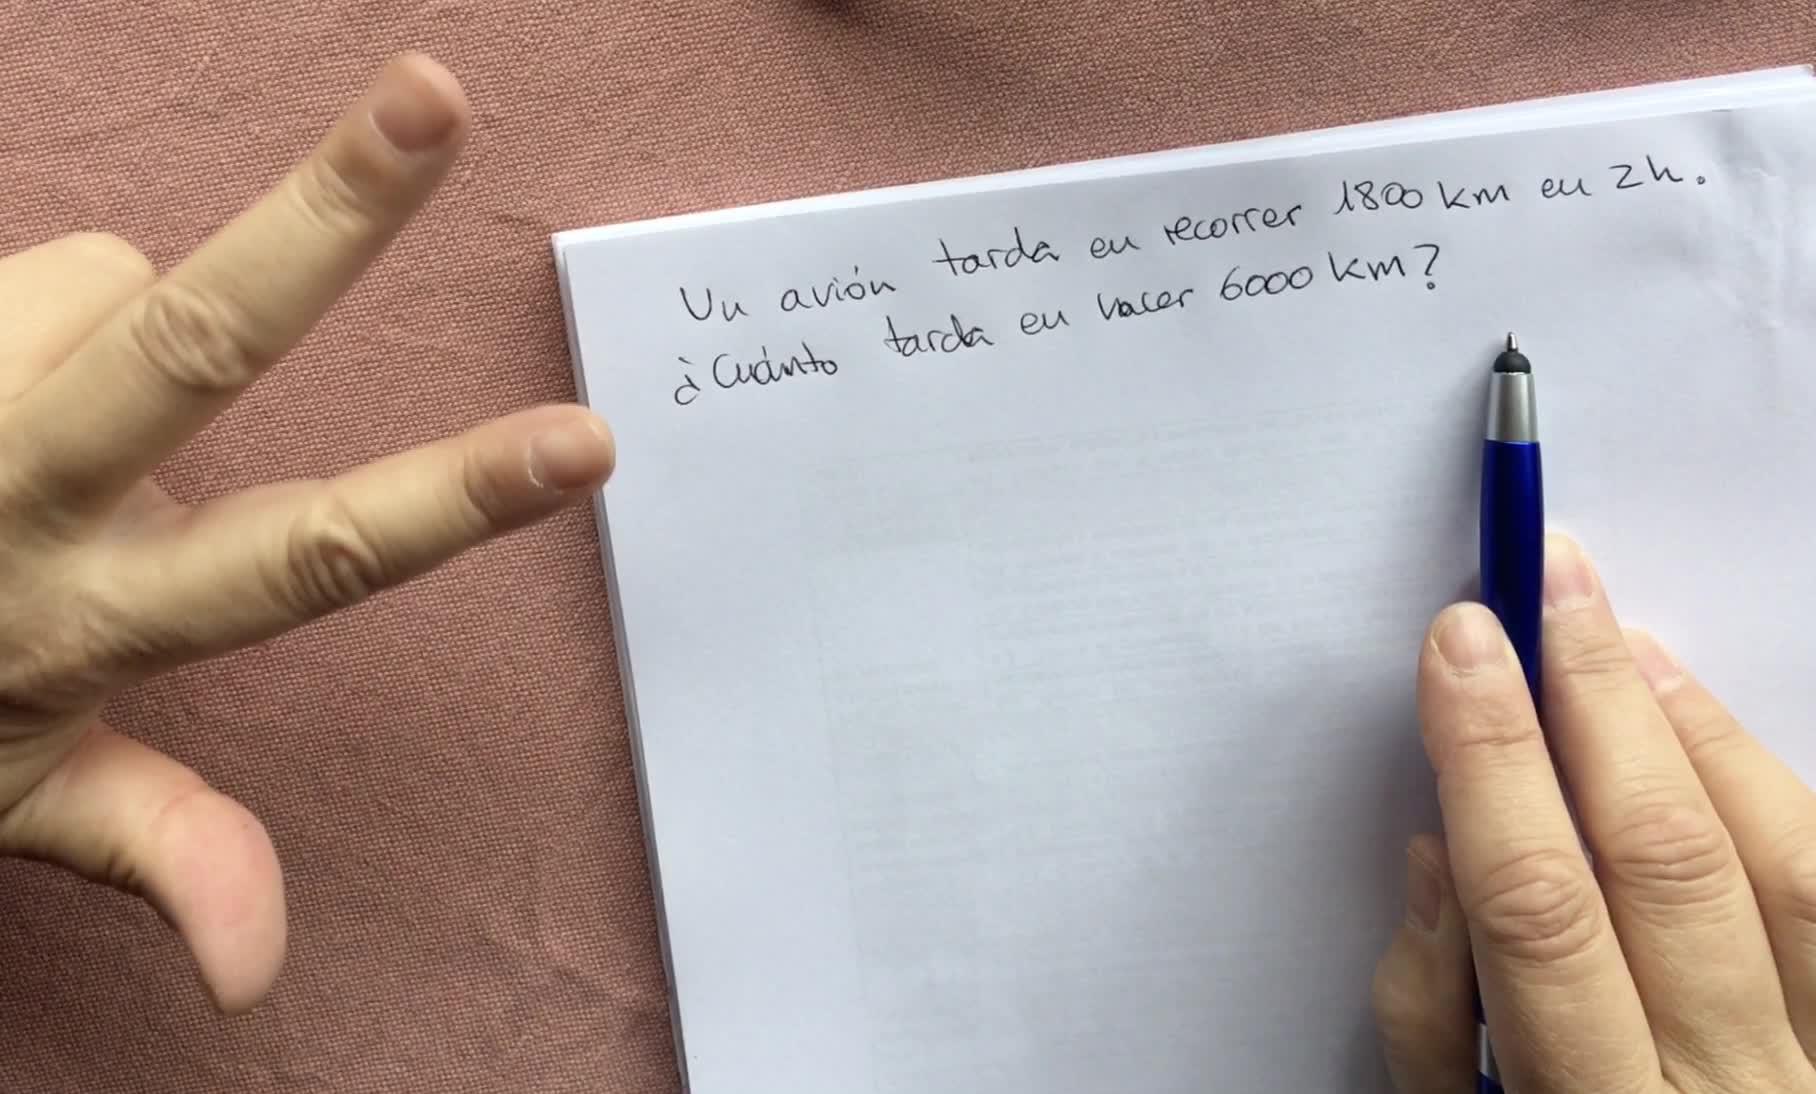 Un avión tarda en recorrer 1800 km en 2h.
¿Cuánto tarda en hacer 6000 km?